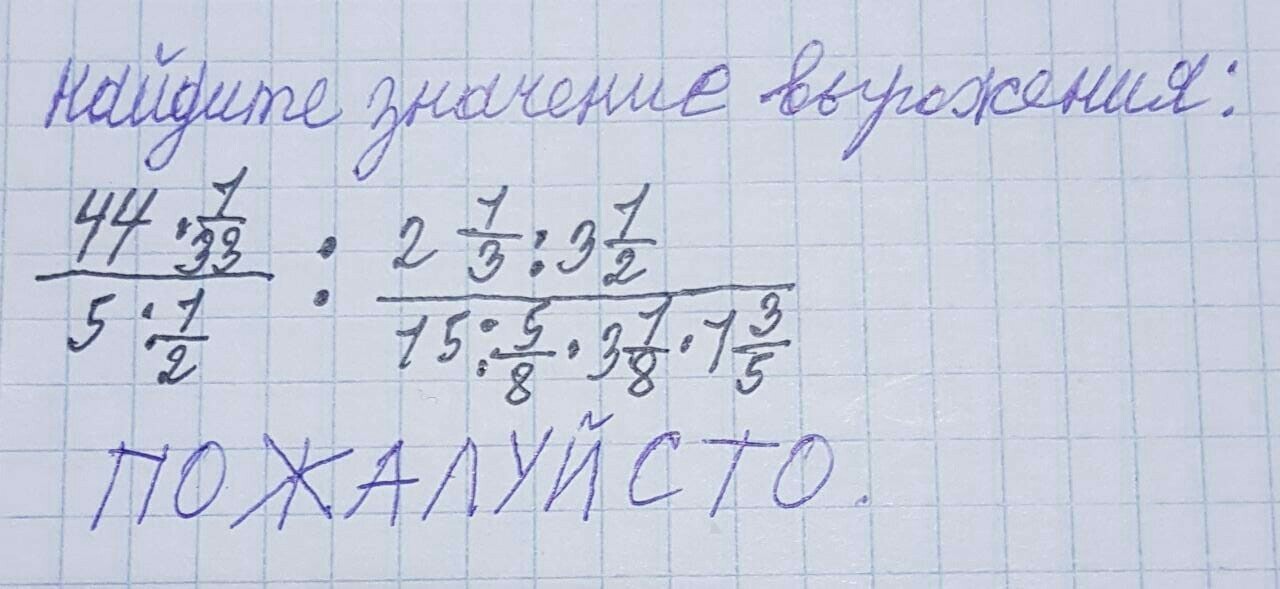 найдите значение выражения:
44 · 1/33 / 5 : 1/2 : 2 1/3 : 3 1/2 / 15 : 5/8 · 3 1/8 · 1 3/5
ПОЖАЛУЙСТО.